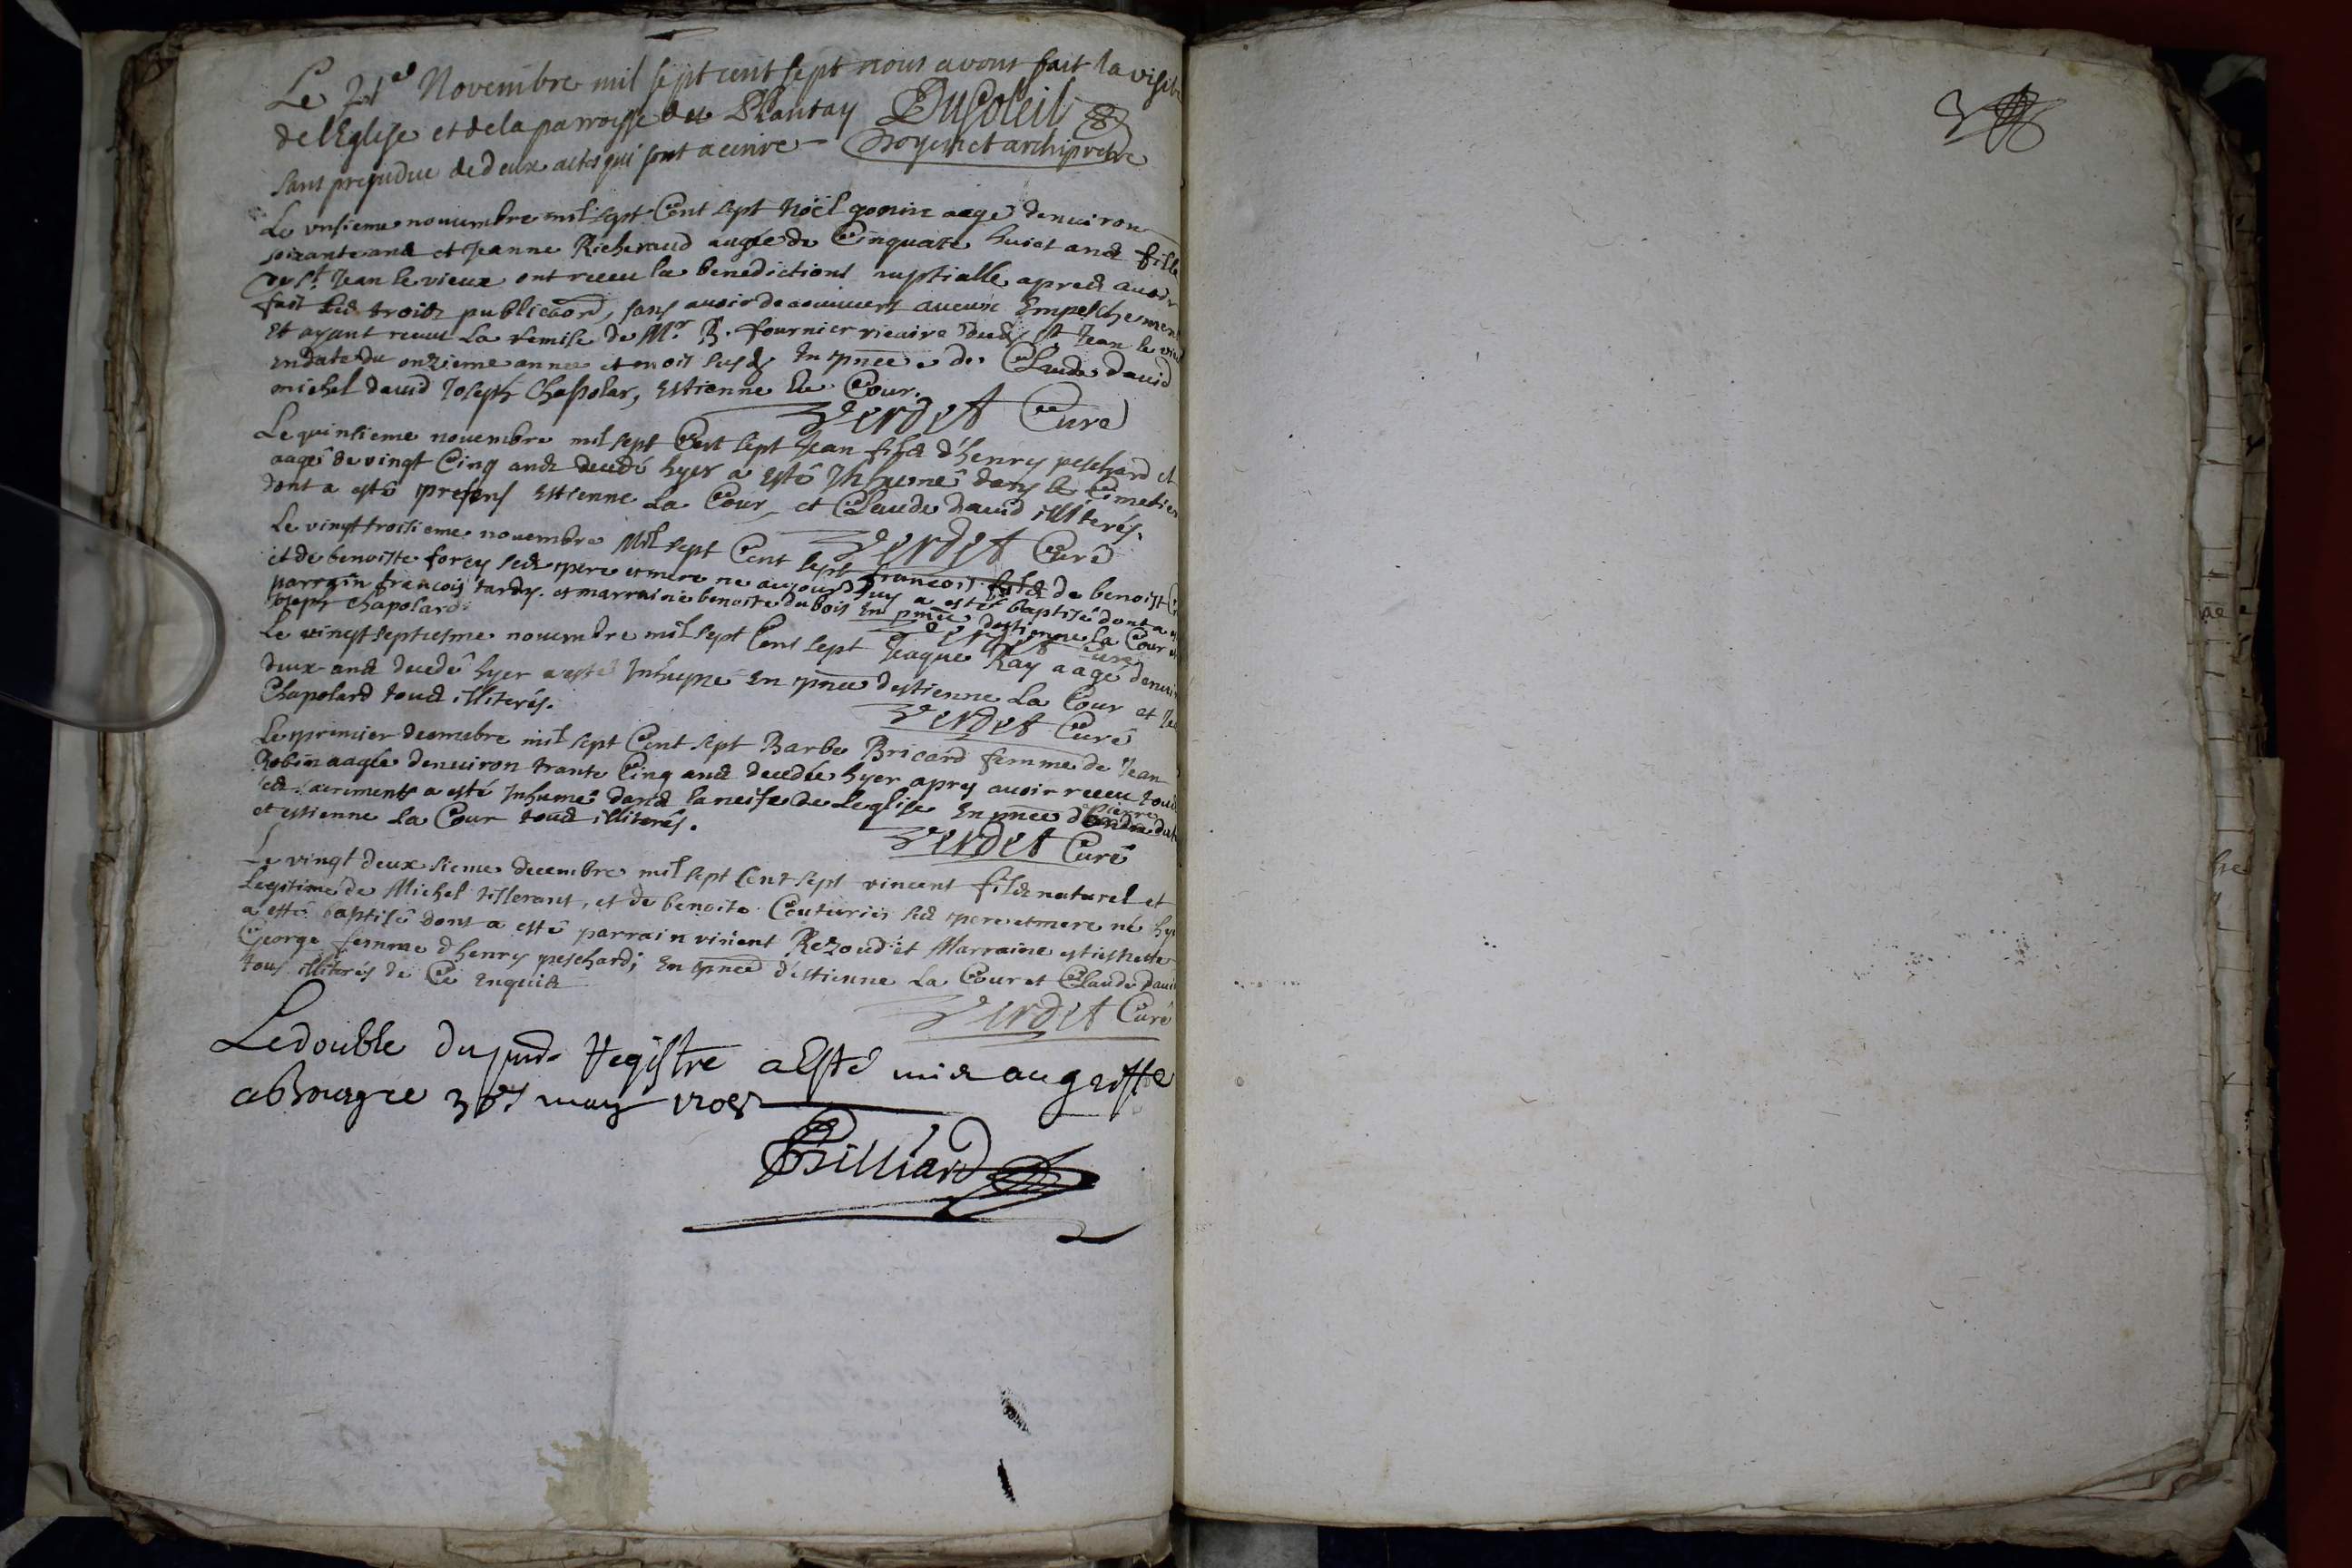 Le 21e Novembre mil sept cent sept nous avons fait la visite
de l'Eglise et de la parroisse du Plantay DuSoleil
sans prejudice de deux actes qui sont a ecrire - Doyen et archipretre
Le unsieme nouembre mil sept Cent sept Noël gonin aagé denuiron
soixante ans et Jeanne Richeraud aagée de Cinquate huict ans fille
de St. Jean le vieux ont receu la benedictions nuptialle apres auoir
fait les trois publicaōns, sans auoir decouuert aucun Empeschement
Et ayant receu La remise de Mr B. fournier vicaire dud. St Jean le vieu
en date du onzieme annee et mois susd. En pnce de Claude dauid
michel dauid Joseph Chapolar, Estienne La Cour.
Verdet Curé
Le quinsieme nouembre mil sept Cent sept Jean fils d'henry peschard et
aagé de vingt Cinq ans decedé hyer a esté Inhumé dans le Cimetier
dont a esté presens Estienne La Cour, et Claude dauid illiterés.
Verdet Curé
Le vingt troisieme nouembre Mil sept Cent sept francois fils de benoist
et de benoiste forey ses pere et mere ne aujourdhuy a esté baptisé dont a
parrain francois tardy. et marraine benoite dubois En pnce destienne La Cour
Joseph Chapolard.
Verdet Curé
Le vingt septiesme nouembre mil sept Cent sept Jaque Ray aagé denui
deux ans decedé hyer a esté Inhumé En pnce destienne La Cour et
Chapolard tous illiterés.
Verdet Curé
Le premier decembre mil sept Cent sept Barbe Bricard femme de Jean
Robin aagée denuiron trante Cinq ans decedée hyer apres auoir receu tous
ses sacrements a esté Inhumé dans la neife de Leglise En pnce de pierre
et estienne La Cour tous illiterés.
Verdet Curé
Le vingt deux sieme decembre mil sept Cent sept vincent fils naturel et
legitime de Michel tisserant, et de benoite Couturier ses pere et mere né hye
a esté baptisé dont a esté parrain vincent Rezoud et Marraine
George femme d'henry peschard; En pnce d'estienne La Cour et Claude Daui
tous illiterés de Ce Enquis
Verdet Curé
Le double du pnt Registre a Esté mis au greffe
a Bourg ce may 1708
Billiard